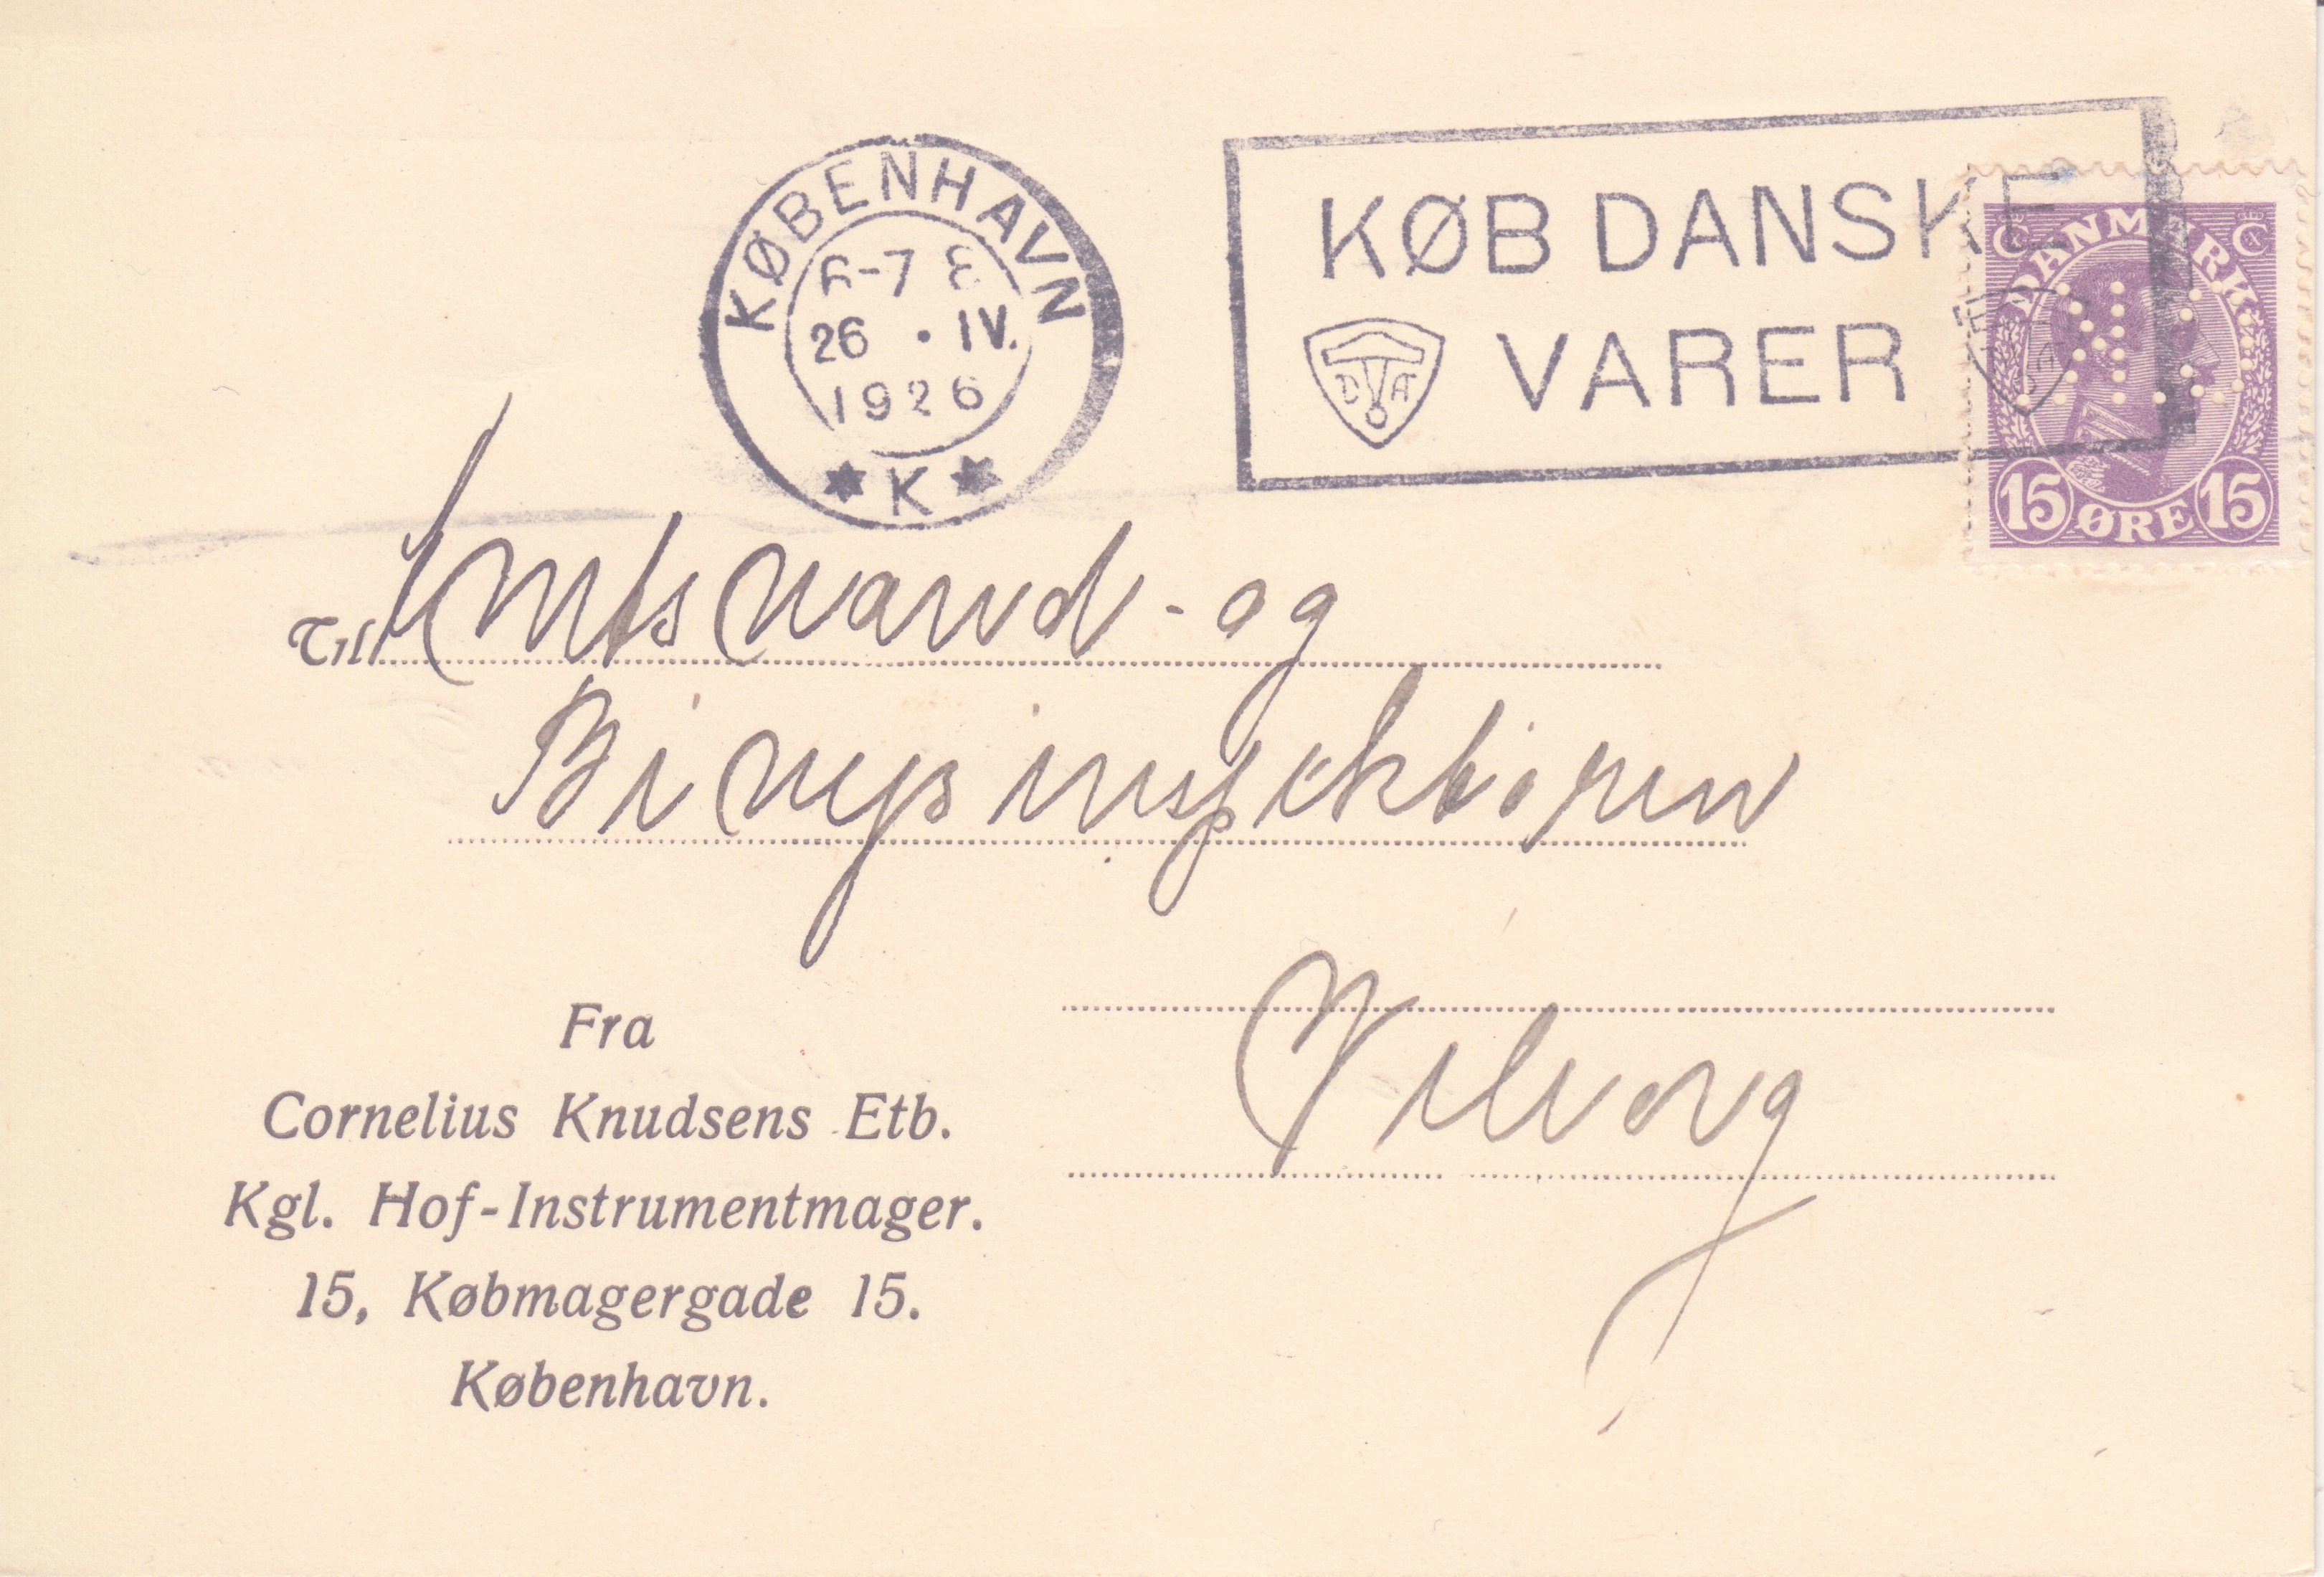 KØBENHAVN
6-7 E
26 • IV.
1926
* K *
KØB DANSKE
DA VARER
C DANMARK C
15 ØRE 15
Til Amtsvand- og
Bivejsinspektøren
Viborg
Fra
Cornelius Knudsens Etb.
Kgl. Hof-Instrumentmager.
15, Købmagergade 15.
København.